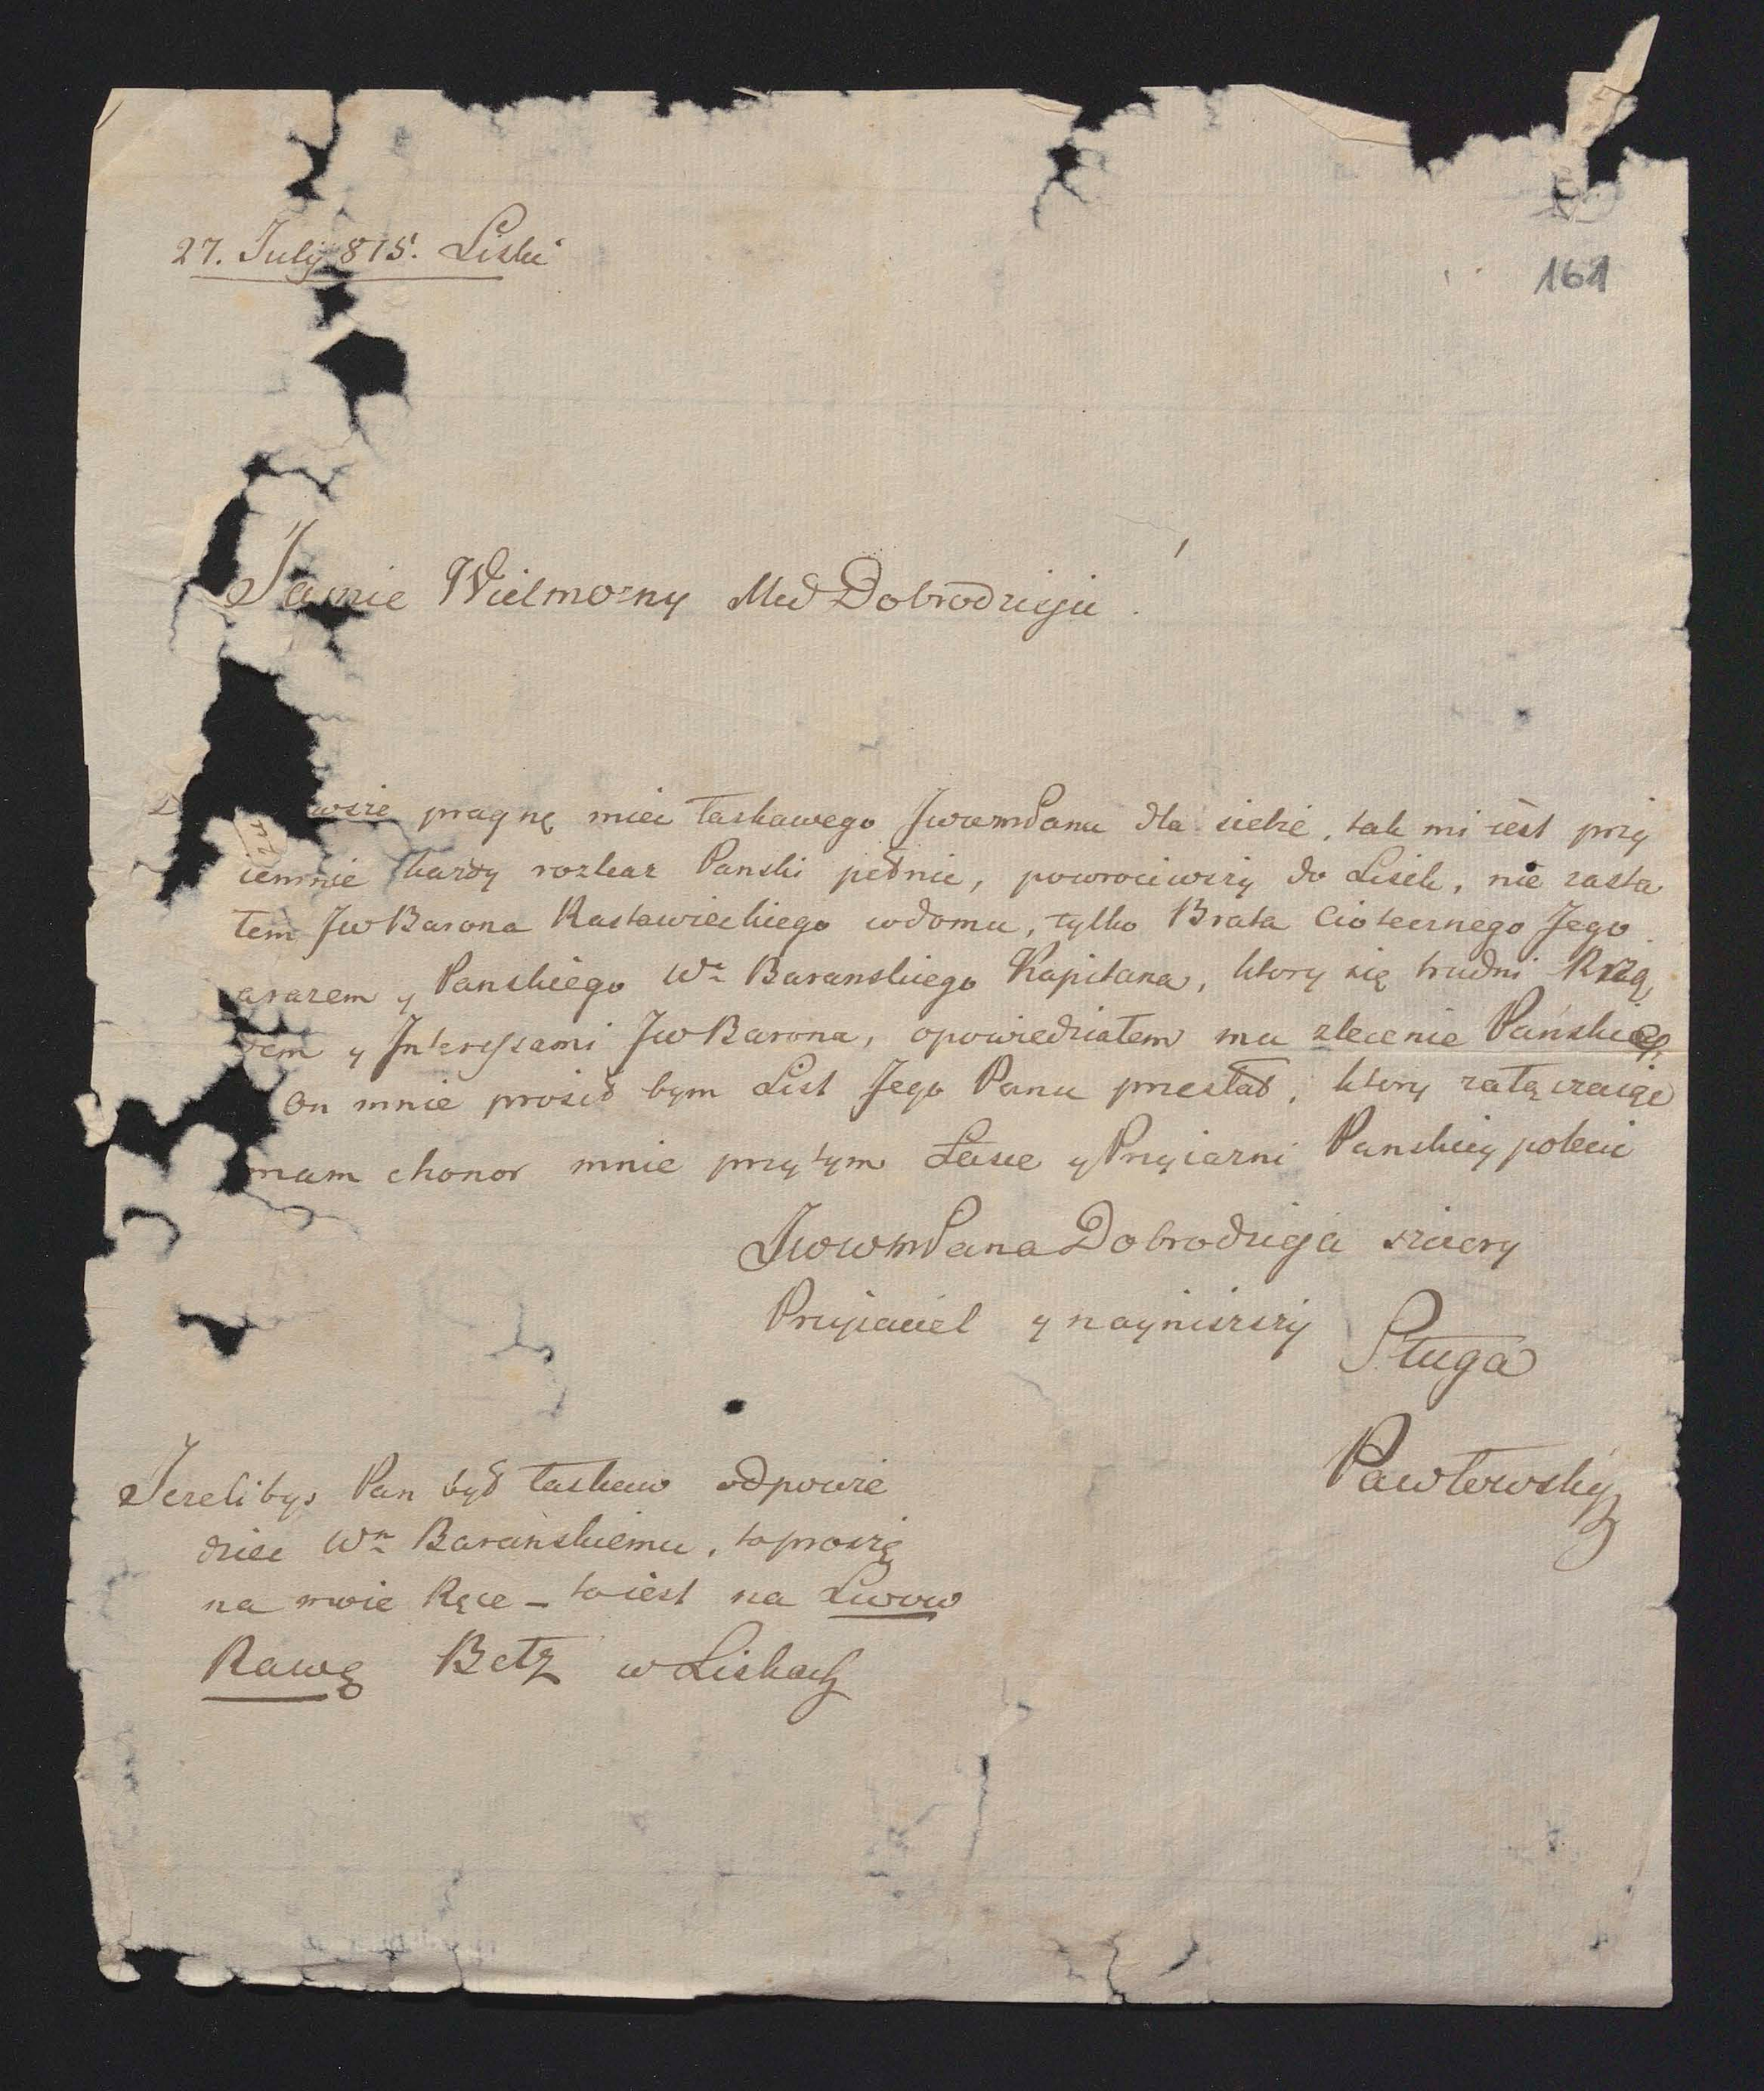 27. July 815. Liski
161
Jaśnie Wielmozny Mci Dobrodzieju
wsze pragnę miec łaskawego Jwwmpana dla siebie, tak mi iest przy
iemnie kazdy rozkaz Panski pełnic, powrociwszy do Lisek, nie zasta
łem Jw Barona Rastawieckiego w domu, tylko Brata Ciotecznego Jego
arazem y Panskiego Wo Baranskiego Kapitana, ktory się trudni Rzą
dem y Interessami Jw Barona, opowiedziałem mu zlecenie Pańskie
On mnie prosił bym List Jego Panu przesłał, ktory załączaiąc
mam chonor mnie przytym Łasce y Przyiazni Panskiey polecic
Jwwmpana Dobrodzieja szczery
Przyjaciel y nayniższy
Sługa
Pawłowsky
Jezelibys Pan był łaskaw odpowie
dziec Wn Barańskiemu, to proszę
na moie Ręce – to iest na Lwow
Rawę Bełz w Liskach